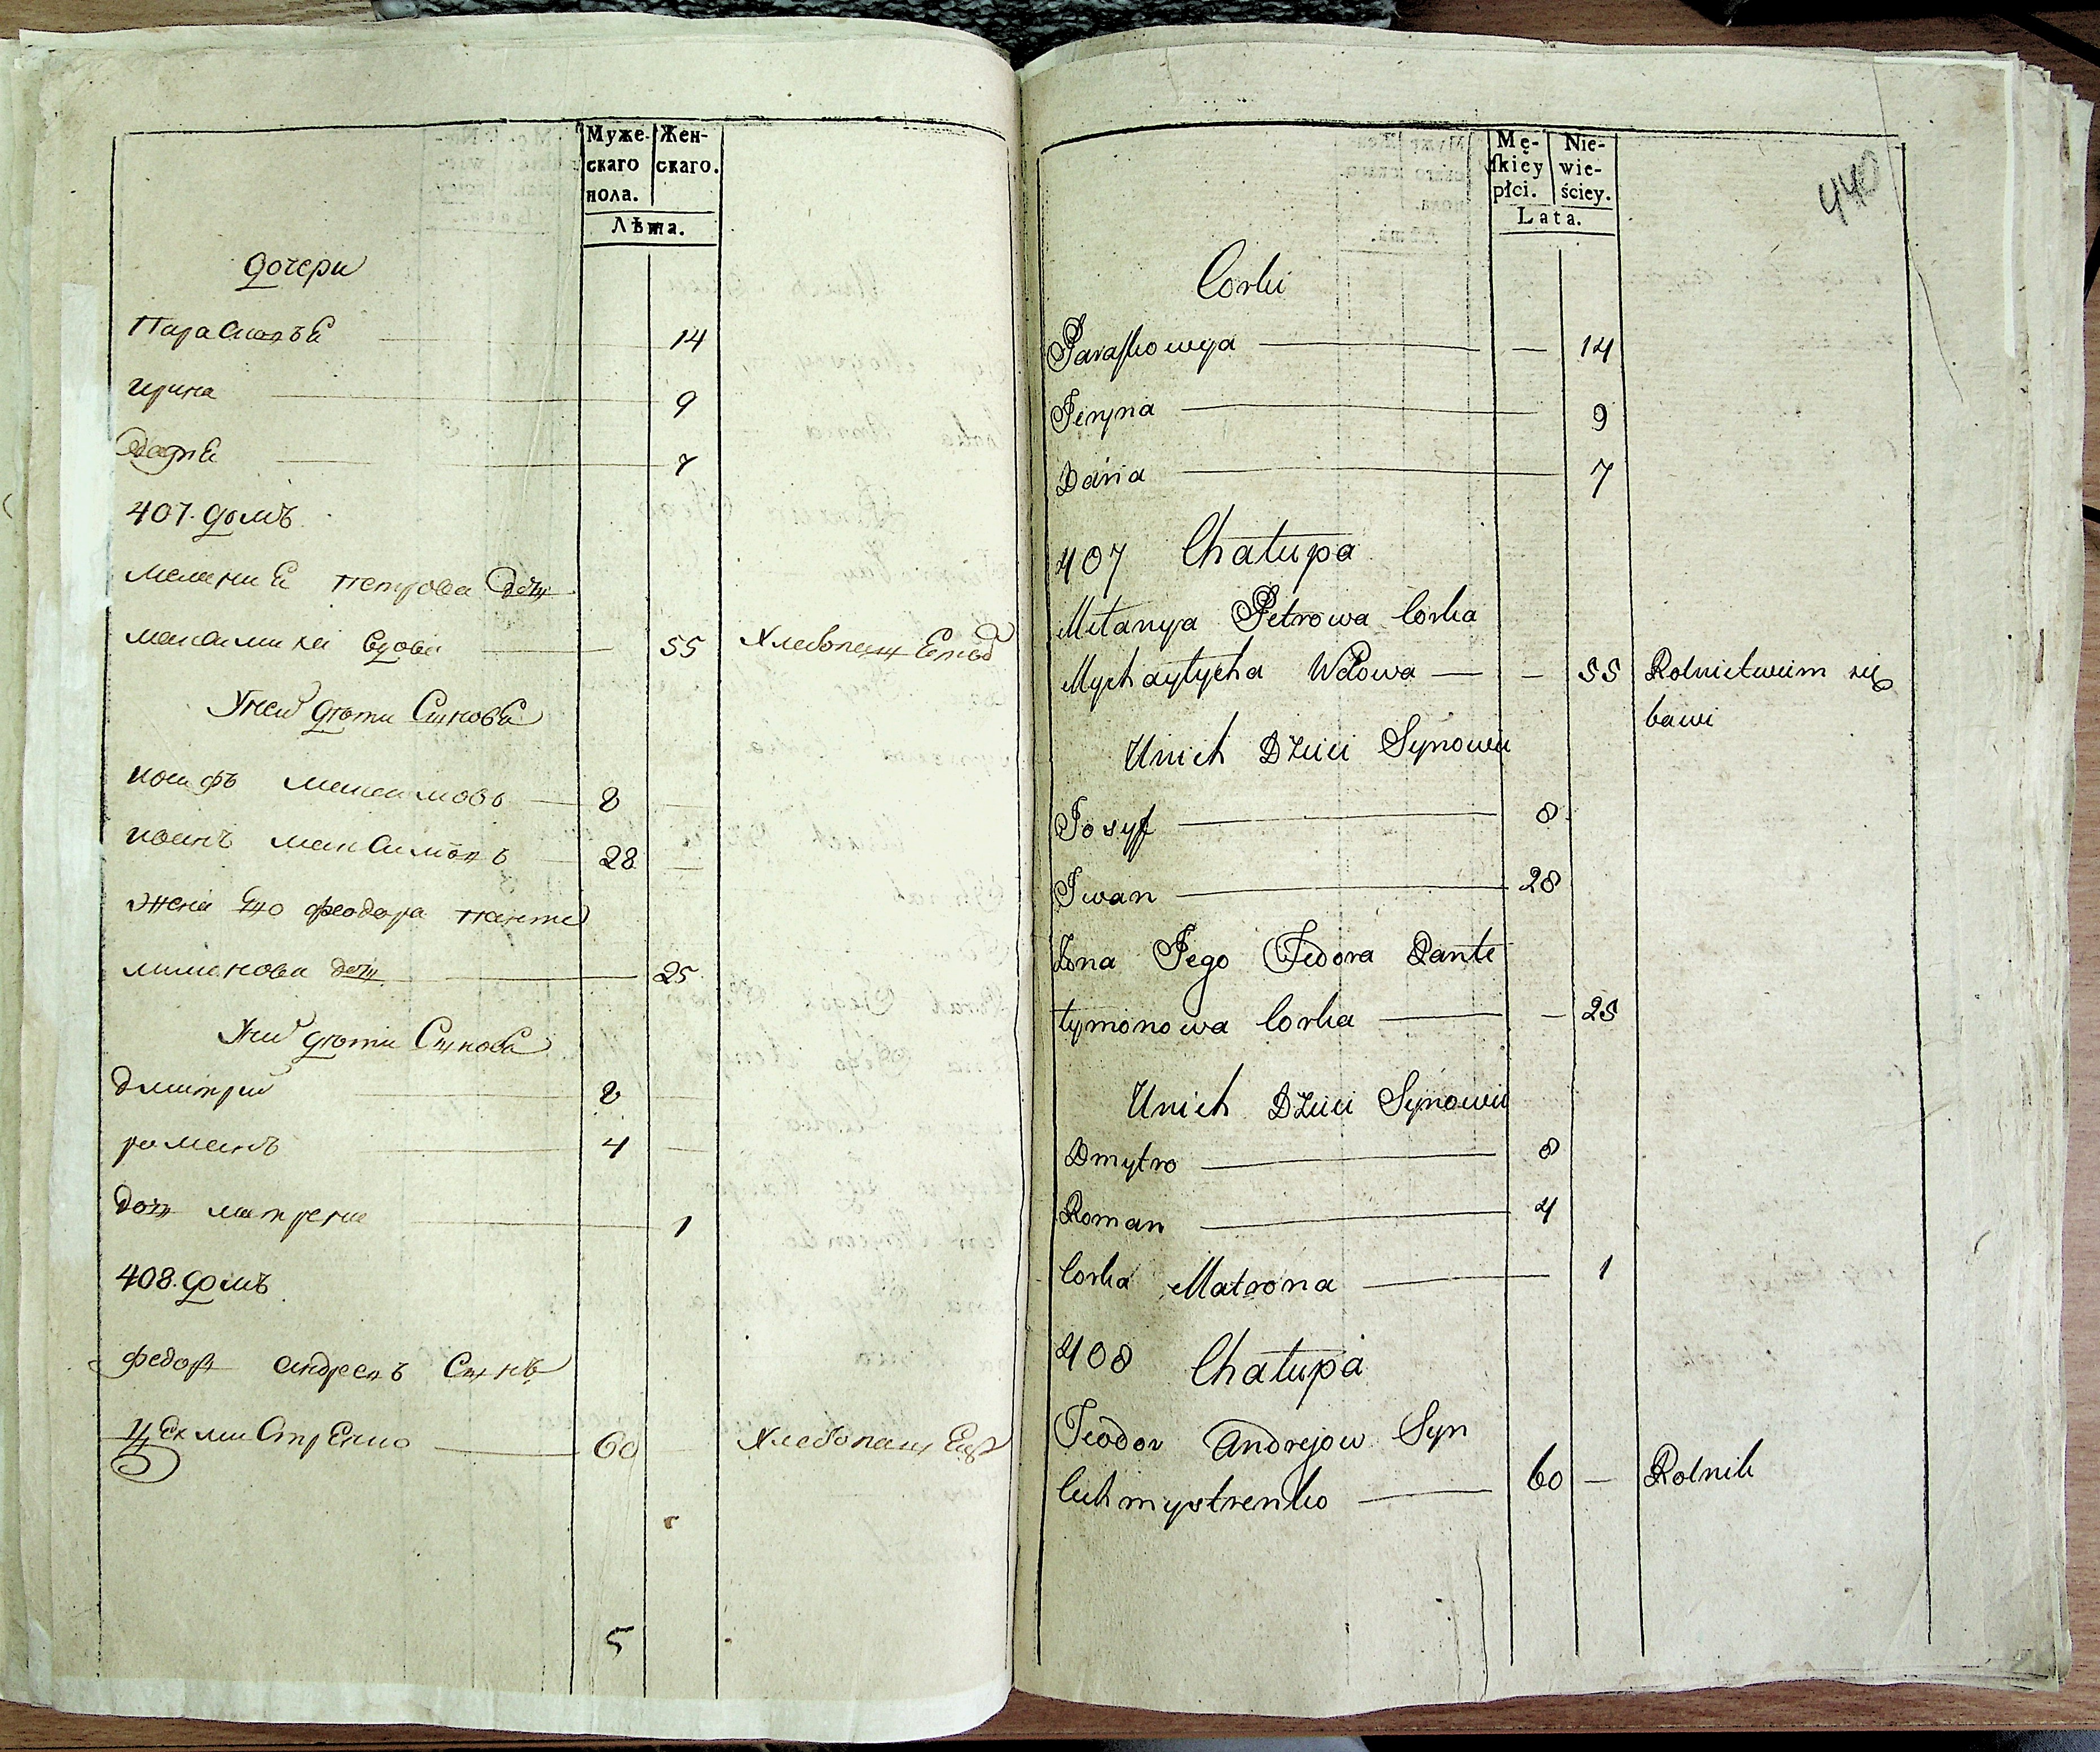 Муже-
скаго
пола.
Жен-
скаго.
Лѣта.
дочери
Параскевѣя 14
ирина 9
дарія 7
407. домъ
меланиѣя петрова дочь
максимиха вдова 55 Хлебопаш
У ней дѣти Сыновья
иосифъ максимовъ 8
иванъ максимовъ 28
жена Его феодора панте
лимонова дочь 25
У них дѣти Сыновья
дмитрий 8
романъ 4
дочь матрена 1
408. домъ
федоръ андреевъ Сынъ
цехмистренко 60 Хлебопаш
5
Mę-
skiéy
płci.
Nie-
wie-
ściey.
Lata.
440
Corki
Paraskowya — 14
Jeryna 9
Daria 7
407 Chałupa
Mełanya Petrowa Corka
Mychayłycha Wdowa — 55 Rolnictwem się
bawi
Unich Dzieci Synowie
Josyf 8
Iwan 28
Zona Jego Fedora Pante
łymonowa Corka — 25
Unich Dzieci Synowie
Dmytro 8
Roman 4
Corka Matrona 1
408 Chałupa
Teodor Andrejow Syn
Cechmystrenko 60 — Rolnik